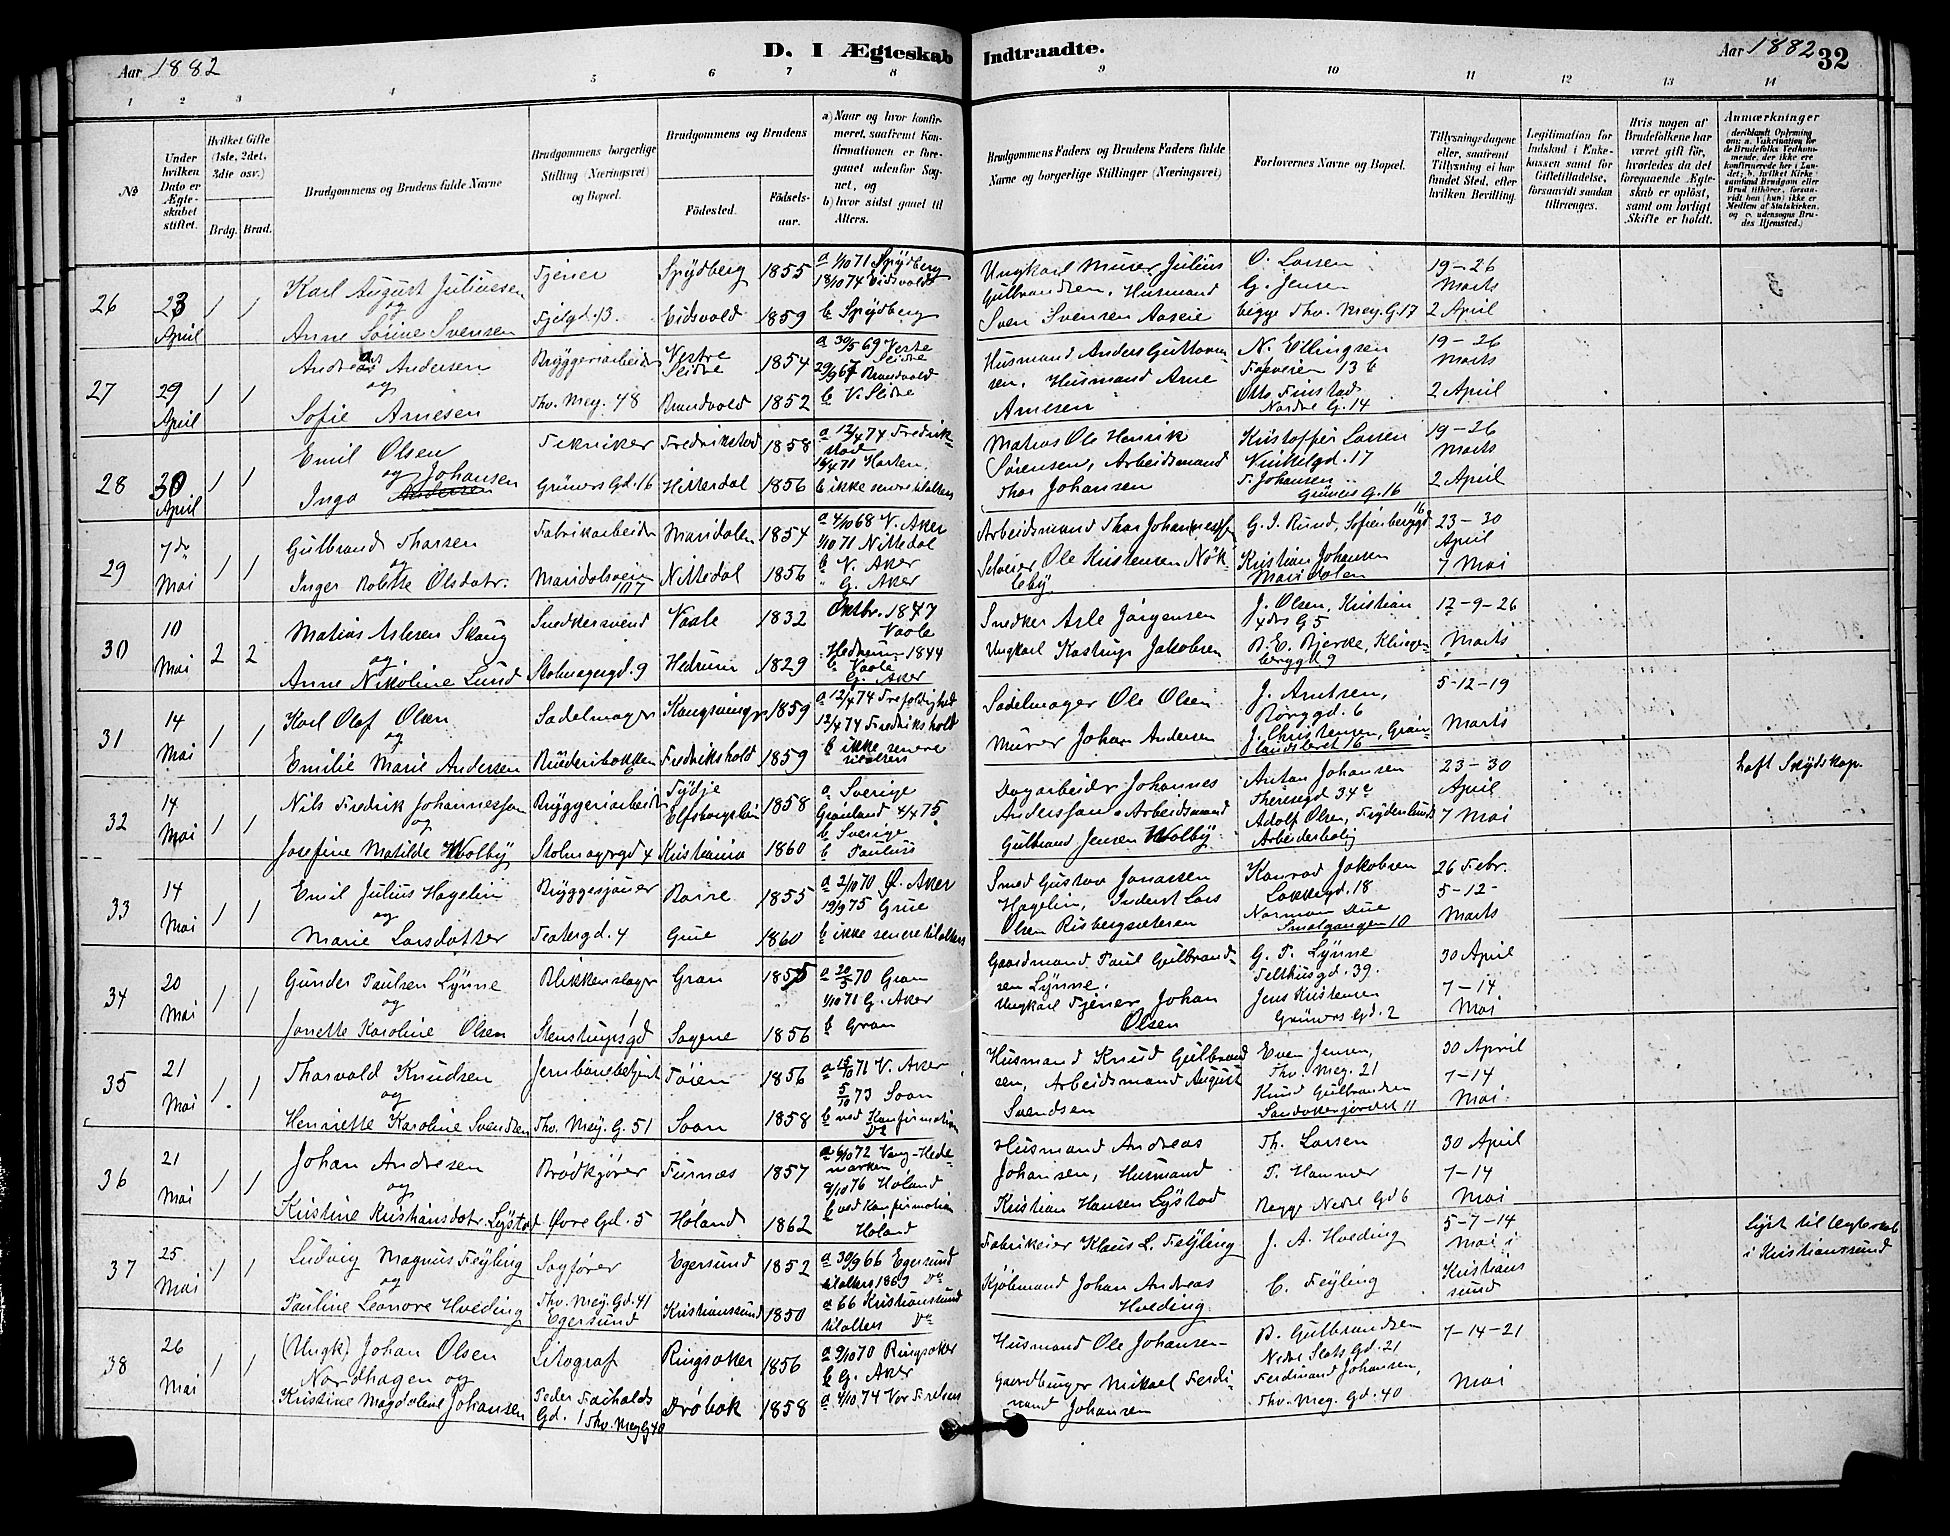 Aar 1882
D. I Ægteskab Indtraadte.
Aar 1882 32
1 2 3 4 5 6 7 8 9 10 11 12 13 14
No
Under hvilken Dato er Ægteskabet stiftet.
Hvilket Gifte (1ste, 2det, 3die osv.)
Brdg. Brud.
Brudgommens og Brudens fulde Navne
Brudgommens borgerlige Stilling (Næringsvei) og Bopæl.
Brudgommens og Brudens
Födested. Födsels-aar.
a) Naar og hvor konfirmeret, saafremt Konfirmationen er foregaaet udenfor Sognet, og
b) hvor sidst gaaet til Alters.
Brudgommens Faders og Brudens Faders fulde Navne og borgerlige Stillinger (Næringsvei)
Forlovernes Navne og Bopæl.
Tillysningsdagene eller, saafremt Tillysning ei har fundet Sted, efter hvilken Bevilling.
Legitimation for Indskud i Enkekassen samt for Giftetilladelse, forsaavidt saadan tiltrænges.
Hvis nogen af Brudefolkene har været gift för, hvorledes da det foregaaende Ægteskab er oplöst, samt om lovligt Skifte er holdt.
Anmærkninger
26
23 April
1 1
Karl August Juliussen
og
Anne Sörine Svensen
Tjener
Spydberg 1855
Eidsvold 1859
a 1/10 71 Spydberg
18/10 74 Eidsvold
b Spydberg
Ungkarl Murer Julius
Gulbrandsen, Husmand
Sven Svensen Aaseie
O. Larsen
G. Jensen
begge Thv. Mey. G. 17
19-26
Marts
2 April
27
29 April
1 1
Andreas Andersen
og
Sofie Arnesen
Bryggeriarbeider
Thv. Mey. 48
Vestre Slidre 1854
Brandvold 1852
a 30/5 69 Vestre Slidre
29/9 67 Brandvold
b V. Slidre
Husmand Anders Guttormsen, Husmand Arne
Arnesen
N. Ellingsen
Otto Finstad
Nordre G. 14
19-26
Marts
2 April
28
30 April
1 1
Emil Olsen
og Johansen
Inga Andersen
Tekniker
Grüners Gd. 16
Fredrikstad 1858
Hitterdal 1856
a 12/4 74 Fredrikstad
16/4 71 Horten
b ikke senere tilalters
Matias Ole Henrik
Sörensen, Arbeidsmand
Thor Johansen
Kristoffer Larsen
Vinkelgd. 17
F. Johansen
Grüners G. 16
19-26
Marts
2 April
29
7de Mai
1 1
Gulbrand Thorsen
og
Inger Bolette Olsdatr.
Fabrikarbeider
Maridalsveien 107
Maridalen 1854
Nittedal 1856
a 4/10 68 V. Aker
1/10 71 Nittedal
b V. Aker
" G. Aker
Arbeidsmand Thor Johannessen
Ole Kristensen Nökleby
G. I. Rund, Sofienberggd 16
Kristian Johansen
Maridalen
23-30
April
7 Mai
30
10 Mai
2 2
Matias Aslesen Skaug
og
Anne Nikoline Lund
Snedkersvend
Stolmagergd. 9
Vaale 1832
Hedrum 1829
Oktbr. 1847
Vaale
Hedrum 1844
b Vaale
G. Aker
Snedker Asle Jörgensen
Ungkarl Kastrup Jakobsen
J. Olsen, Kristian
4des G 5
B. E. Bjerke, Klingenberggd 9
12-9-26
Marts
31
14 Mai
1 1
Karl Olaf Olsen
og
Emilie Marie Andersen
Sadelmager
Kongsvinger 1859
Fredrikshald 1859
a 12/4 74 Trefoldighed
12/4 74 Fredrikshald
b ikke senere
tilalters
Sadelmager Ole Olsen
Murer Johan Andersen
J. Arntsen,
Borggd. 6
J. Christensen, Grönlandsleret 16
5-12-19
Marts
32
14 Mai
1 1
Nils Fredrik Johannesson
og
Josefine Matilde Wolby
Bryggeriarbeider
Stolmagergd 4
Elfsborgslän 1858
Kristiania 1860
a Sverige
Grönland 4/4 75
b Sverige
b Paulus
Dagarbeider Johannes
Andersson. Arbeidsmand
Gulbrand Jensen Wolby
Anton Johansen
Theresegd 34c
Adolf Olsen, Frydenlunds
Arbeiderbolig
23-30
April
7 Mai
haft Skydskop.
33
14 Mai
1 1
Emil Julius Hagelin
og
Marie Larsdatter
Bryggesjouer
Teatergd. 4
1855
Grue 1860
a 2/10 70 Ø. Aker
19/9 75 Grue
b ikke senere tilalters
Smed Gustav Jonassen
Hagelin, Inderst Lars
Olsen Risbergsæteren
Konrad Jakobsen
Lakkegd. 18
Smalgangen 10
26 Febr.
5-12-
Marts
34
20 Mai
1 1
Gunder Paulsen Lynne
og
Janette Karoline Olsen
Blikkenslager
Stenstrupsgd 1
Gran 1855
Sagene 1856
a 20/5 70 Gran
1/10 71 G. Aker
b Gran
Gaardmand Paul Gulbrandsen Lynne.
Ungkarl Tjener Johan
Olsen
G. P. Lynne
Telthusgd. 39.
Jens Kristensen
Grüners Gd. 2
30 April
7-14
Mai
35
21 Mai
1 1
Thorvald Knudsen
og
Henriette Karoline Svendsen
Jernbanebetjent
Thv. Mey. G. 51
Töien 1856
Soon 1858
a 15/10 71 V. Aker
5/10 73 Soon
b ved Konfirmation
Do
Husmand Knud Gulbrandsen, Arbeidsmand August
Svendsen
Even Jensen,
Thv. Mey. 21
Knud Gulbrandsen
Sandakerjordet 11
30 April
7-14
Mai
36
21 Mai
1 1
Johan Andresen
og
Kristine Kristiansdatr Lystad
Brödkjörer
Övre Gd. 5
Furnæs 1857
Höland 1862
a 6/10 72 Vang-Hedemarken
8/10 76 Höland
b ved Konfirmation
Höland
Husmand Andreas
Johansen, Husmand
Kristian Hansen Lystad
Th. Larsen
T. Hammer
Begge Nedre Gd 6
30 April
7-14
Mai
37
25 Mai
1 1
Ludvig Magnus Feyling
og
Pauline Leonore Hveding
Sagförer
Thv. Mey. Gd. 41
Egersund
Egersund 1852
Kristianssund 1850
a 30/9 66 Egersund
tilalters 1869 Do
a 66 Kristianssund
tilalters Do
Fabrikeier Klaus L. Feyling
Kjöbmand Johan Andreas
Hveding
J. A. Hveding
C. Feyling
5-7-14
Mai i
Kristianssund
lyst til Ægteskab
i Kristianssund
38
26 Mai
1 1
(Ungk) Johan Olsen
Nordhagen og
Kristine Magdalene Johansen
Litograf
Gd. 1 Thv. Mey G 40
Ringsaker 1856
Dröbak 1858
a 9/10 70 Ringsaker
b G. Aker
a 4/10 74 Vor Frelsers
Husmand Ole Johansen
Gaardbruger Mikael Ferdinand Johansen
B. Gulbrandsen
Nedre Slots Gd. 21
Ferdinand Johansen,
Thv. Mey. Gd. 40
7-14-21
Mai